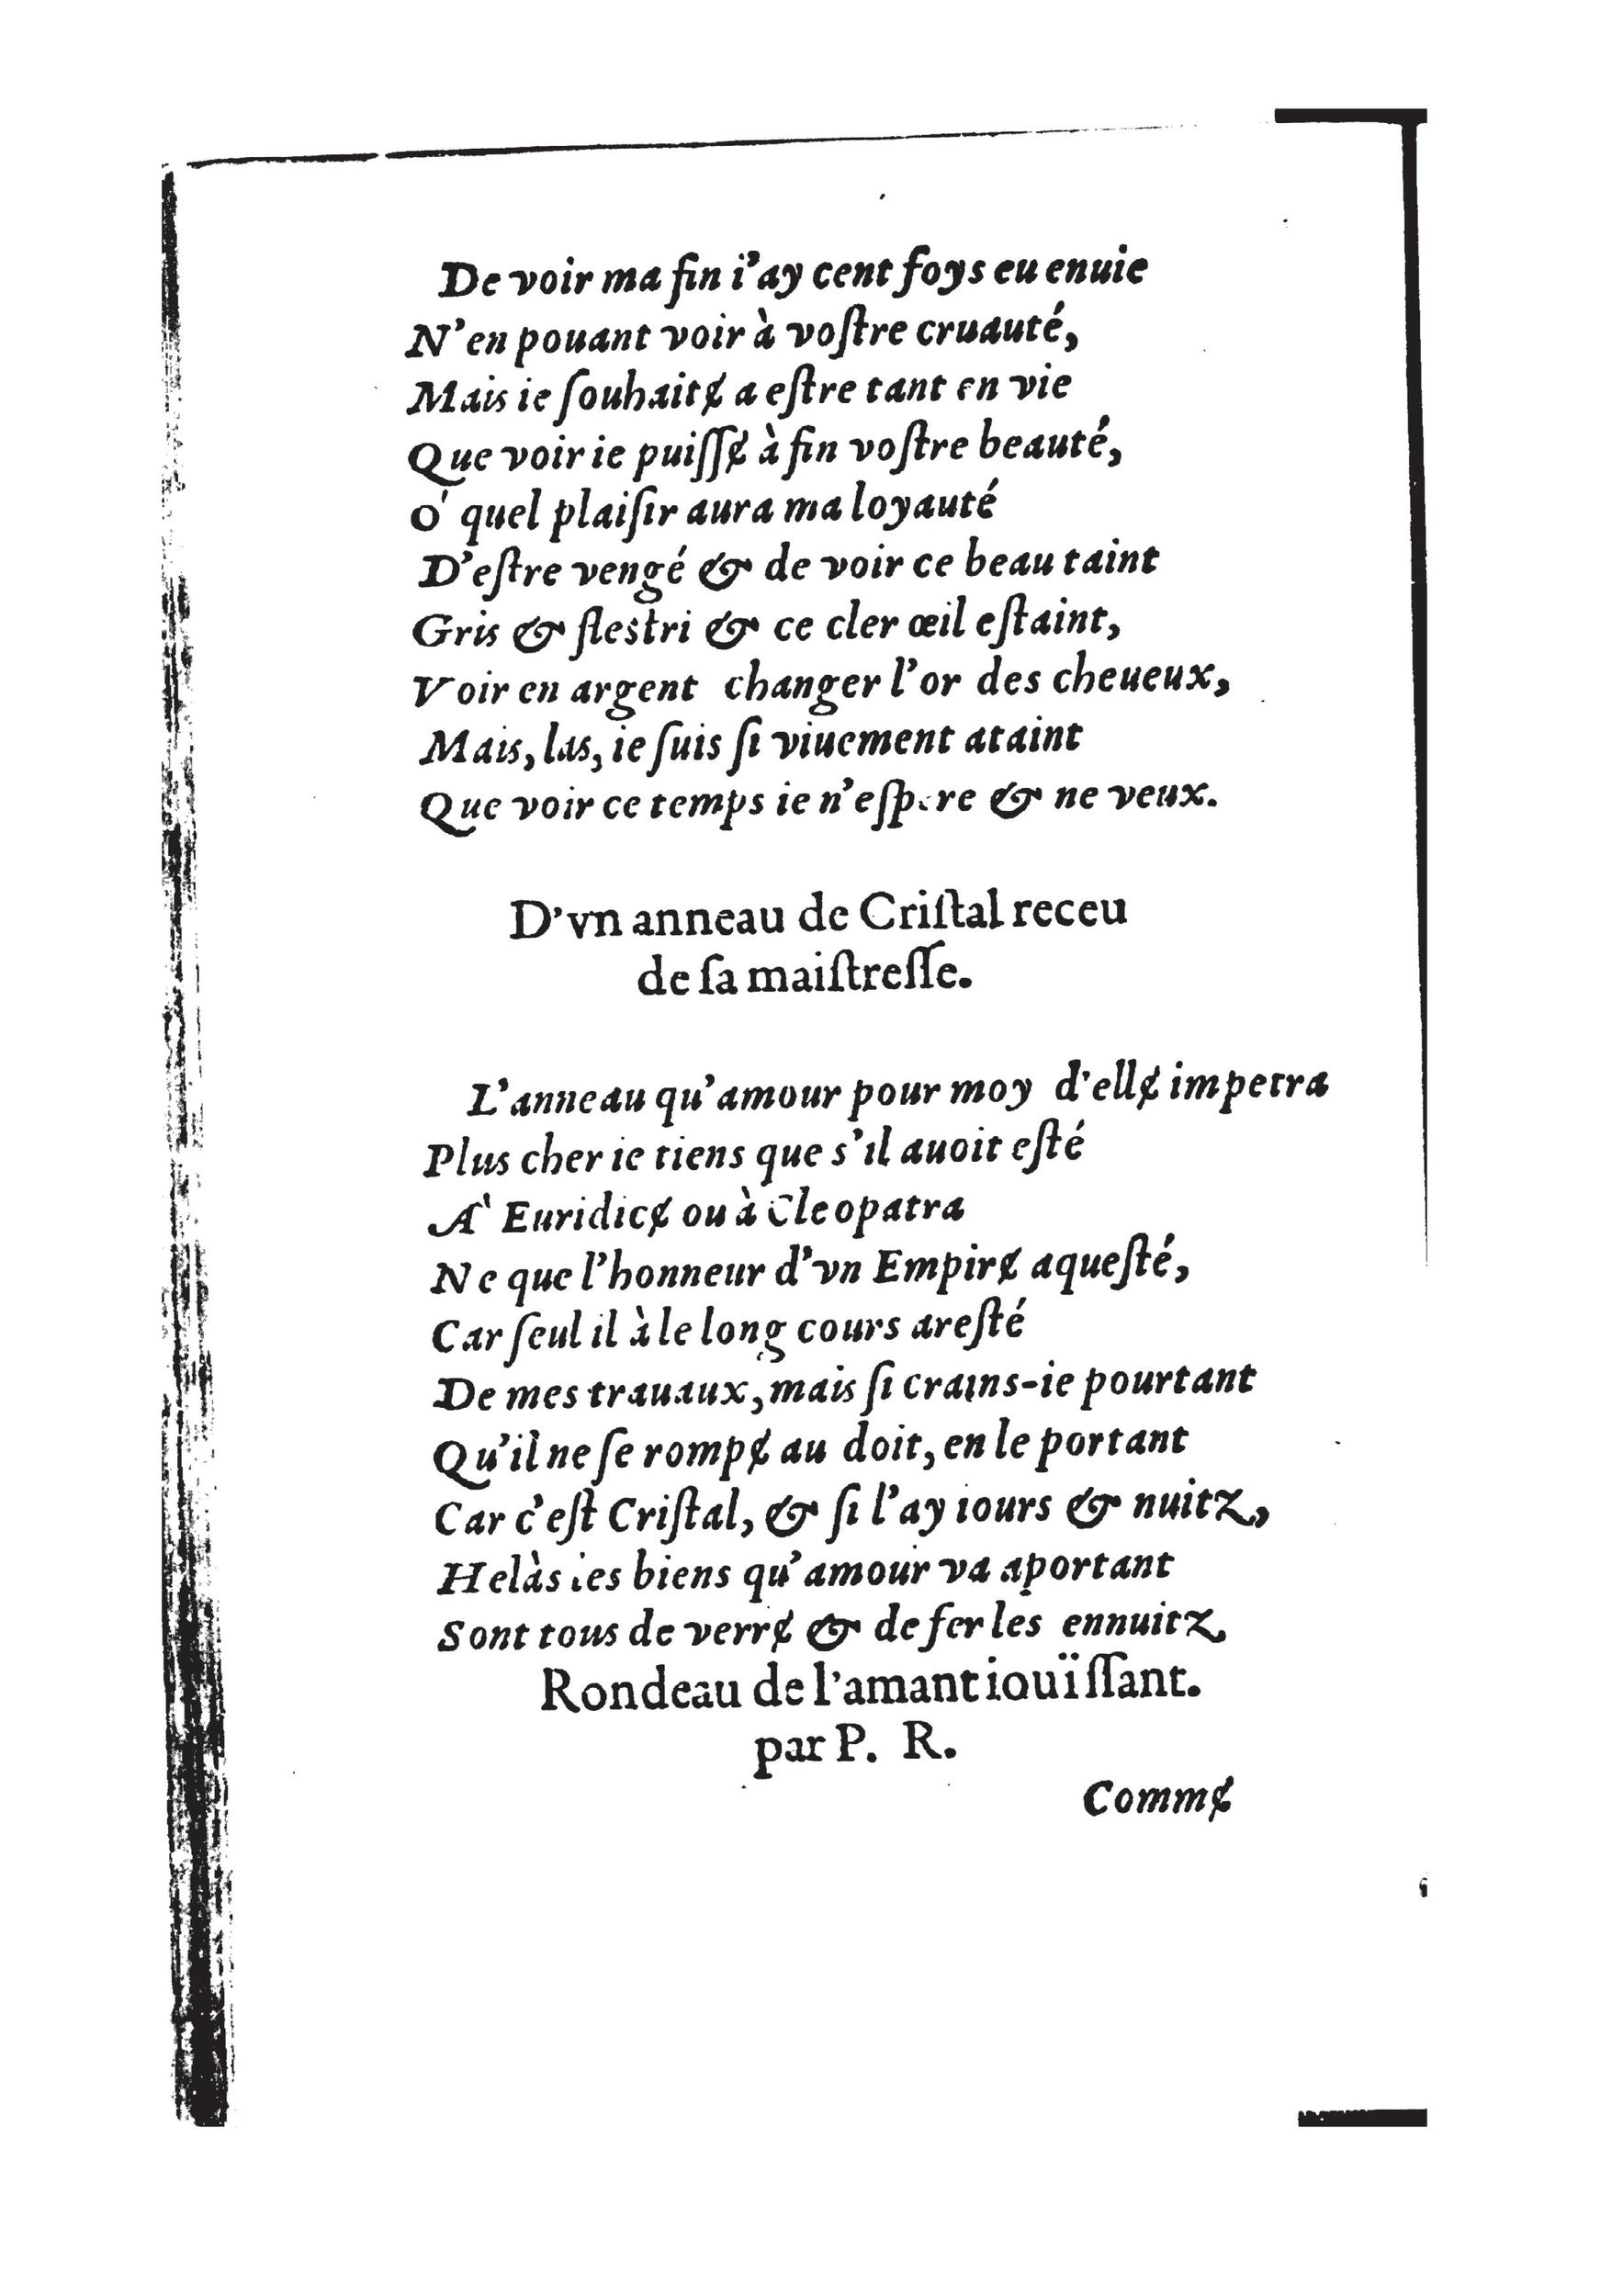 De voir ma fin i'ay cent foys eu enuie
N'en pouant voir à voſtre cruauté,
Mais ie ſouhaitɇ a eſtre tant en vie
Que voir ie puiſſɇ à fin voſtre beauté,
O' quel plaiſir aura ma loyauté
D'eſtre vengé & de voir ce beau taint
Gris & fleſtri & ce cler œil eſtaint,
Voir en argent changer l'or des cheueux,
Mais, las, ie ſuis ſi viuement ataint
Que voir ce temps ie n'eſpere & ne veux.
D'vn anneau de Criſtal receu
de ſa maiſtreſſe.
L'anneau qu'amour pour moy d'ellɇ impetra
Plus cher ie tiens que s'il auoit eſté
A' Euridicɇ ou à Cleopatra
Ne que l'honneur d'vn Empirɇ aqueſté,
Car ſeul il à le long cours areſté
De mes trauaux, mais ſi crains-ie pourtant
Qu'il ne ſe rompɇ au doit, en le portant
Car c'eſt Criſtal, & ſi l'ay iours & nuitz,
Helàs les biens qu'amour va aportant
Sont tous de verrɇ & de fer les ennuitz
Rondeau de l'amant iouïſſant.
par P. R.
Commɇ